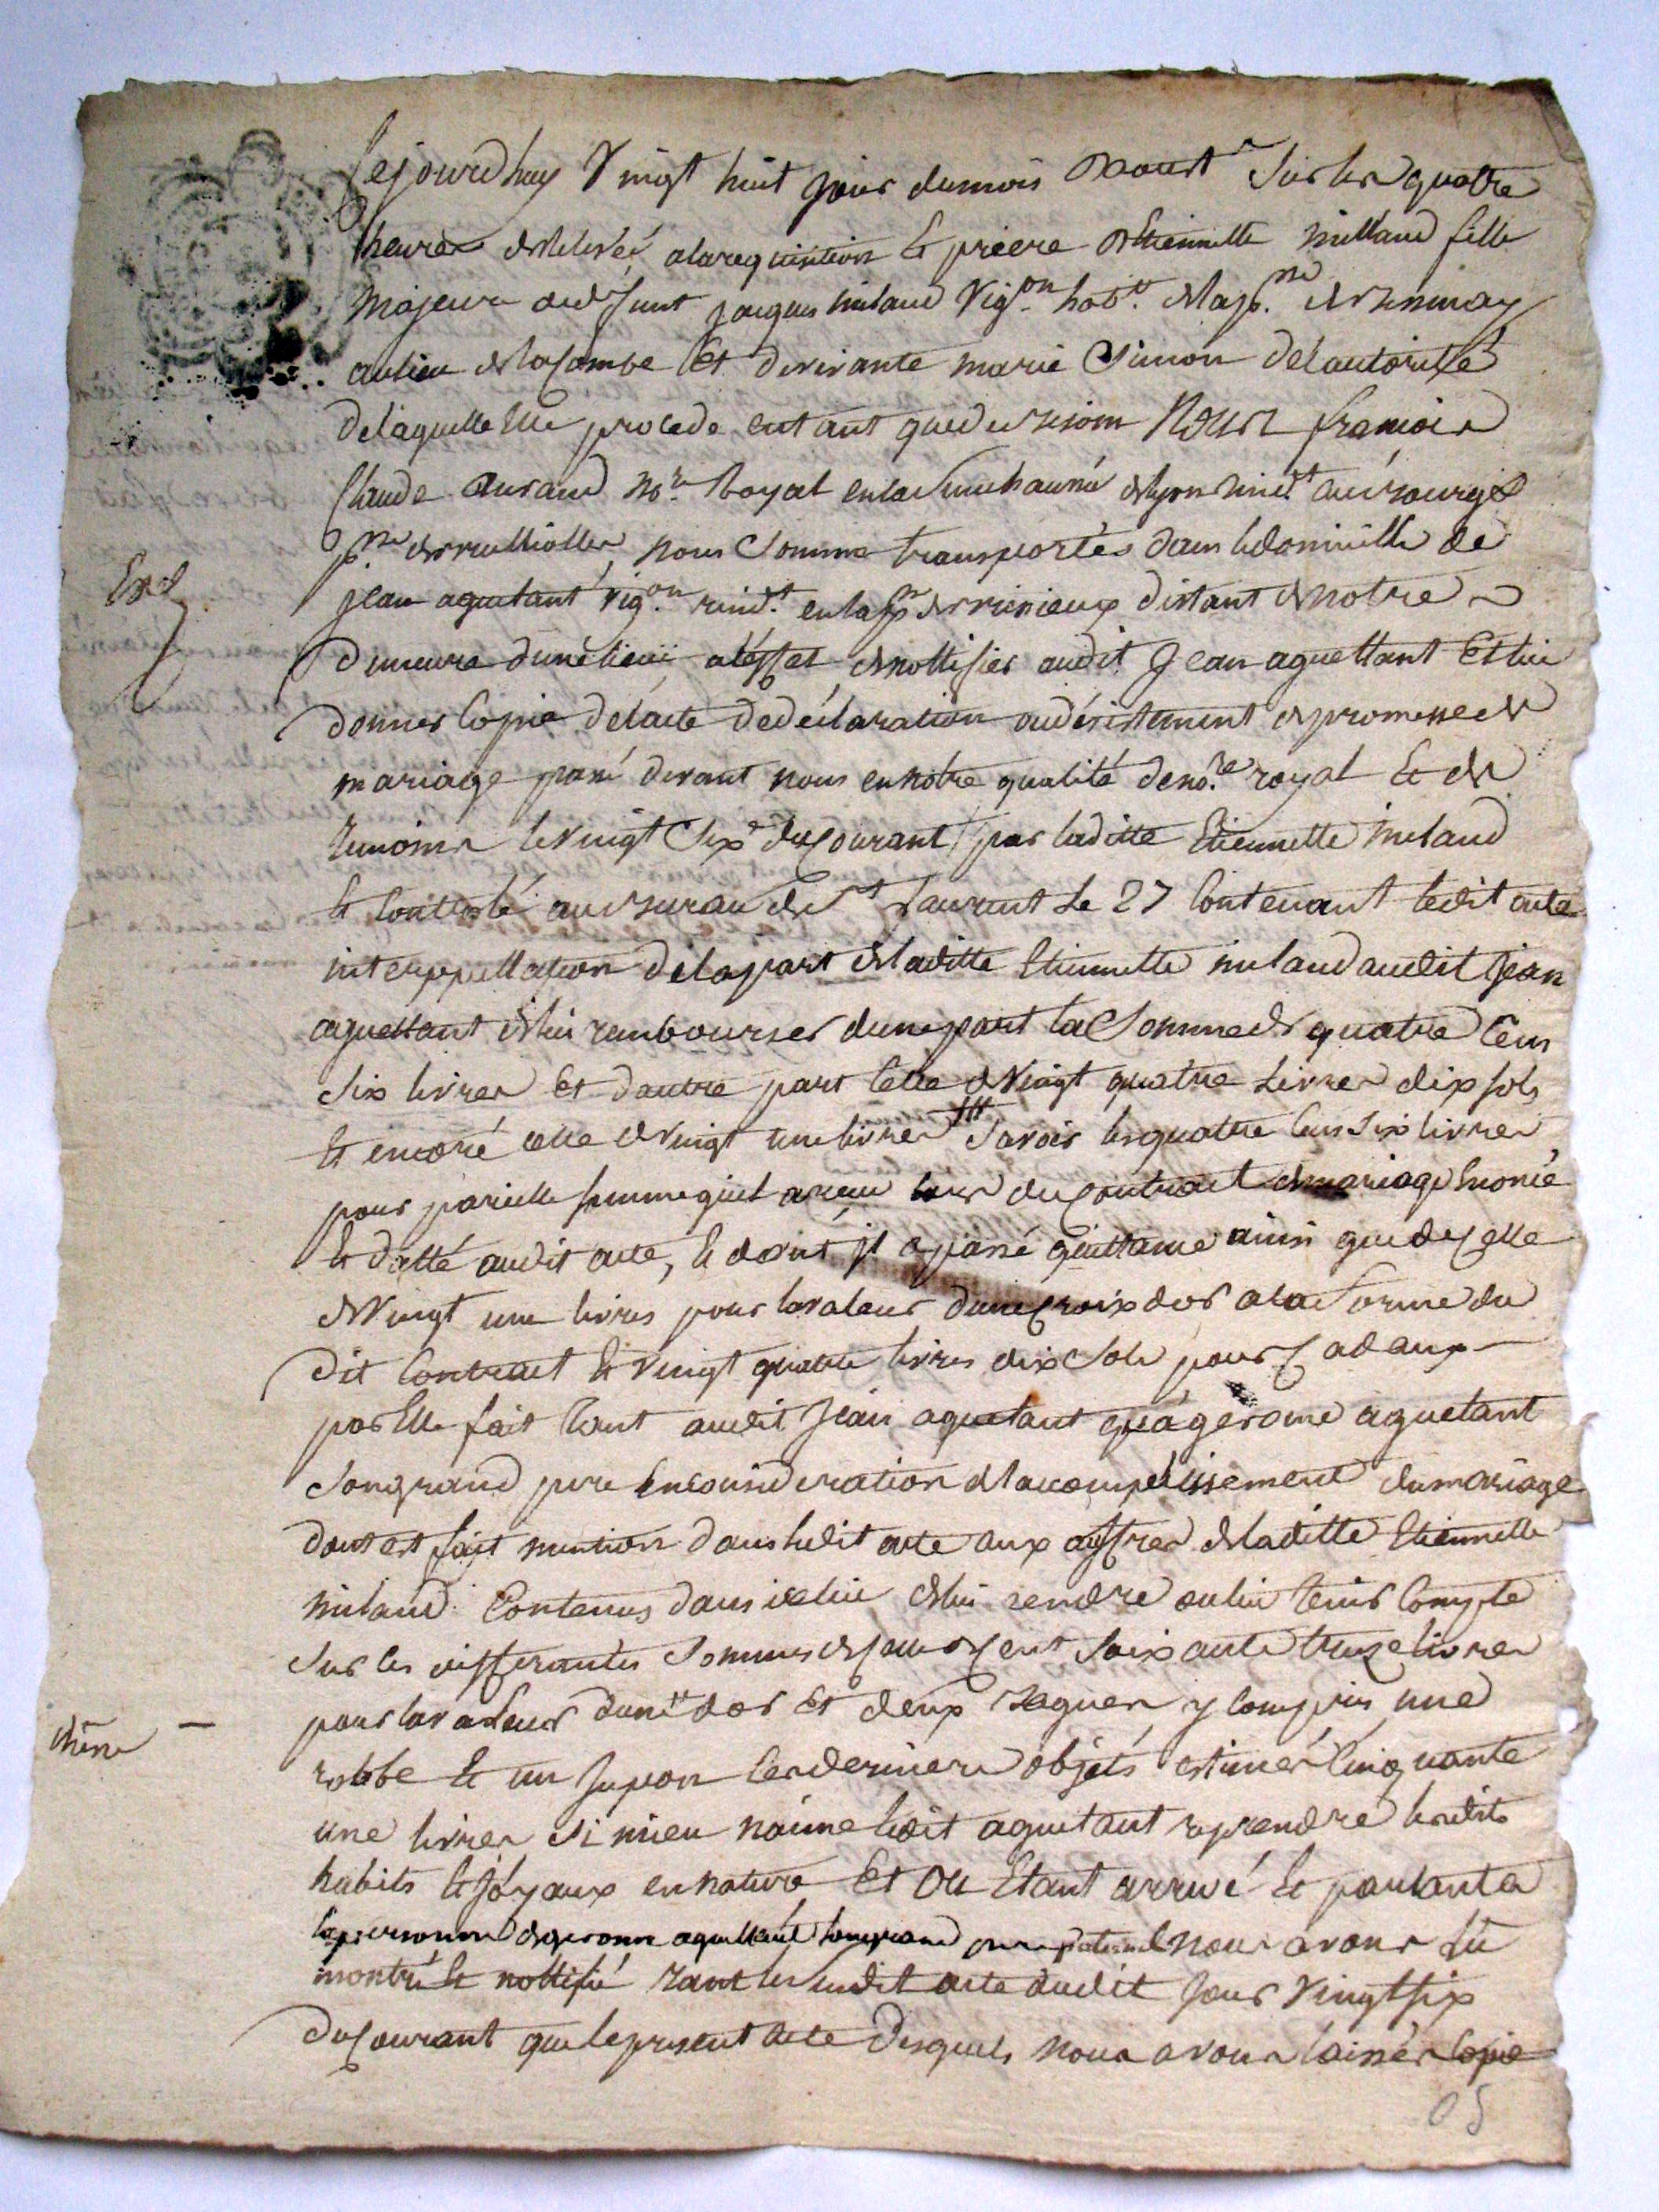 Cejourdhuy Vingt huit jour dumois Daoust Sur les quatre
heures de relevée alarequisition & priere detiennette millaud fille
majeure dedefunt jacques milaud Vig.on hab.t de la p.sse de
aulieu de lacombe et devivante marie Simon delautorité
delaquelle elle procede entant quede besoin Nous francois
Claude durand no.re Royal en la Senechaussé de lyon resid.t au bourg &
p.sse de nous Somme transportés dans ledomicille de
Exp.
jean aguetant vig.on resid.t en la p.sse de distant de notre
demeure dune lieüe aleffet denottifier audit Jean aguettant et lui
donner Copie delacte dedeclaration audesistement de promesse de
mariage passé devant nous en notre qualité deno.re royal & de
temoins levingt Six ducourant par laditte Etiennette milaud
& Controlé au bureau de St Laurent Le 27 Contenant ledit acte
interppellation delapart de laditte Etiennette milaud audit Jean
aguettant de lui rembourser dune part la Somme de quatre Cent
Six livres et dautre part Celle de Vingt quatre Livres dix sols
& encore celle de vingt une livres Savoir les quatre Cent Six livres
pour pareille somme quil a recu lors du Contract de mariage enoncé
& datté audit acte, & dont il a passé quittance ainsi que de celle
de Vingt une livres pour la valeur dune Croix dor a la forme du
dit Contract & vingt quatre livres dix Sols pour Cadeaux
par Elle fait tant audit Jean aguetant qu'a gerome aguetant
Songrand pere en consideration de lacomplissement dumariage
dont est fait mention dans ledit acte aux offres de laditte Etiennette
milaud Contenus dans icelui de lui rendre ou lui tenir Compte
Sur les differantes Sommes de celle de Cent Soixante treize livres
pour la valeur dune "dor et deux bagues y Compris une
robbe & un Jupon Ces derniers objets estimés Cinquante
une livres Si mieu naime ledit aguetant reprendre lesdits
habits & joyaux en nature et Ou Etant arrivé & parlant a
la personne de gerome aguettant Songrand pere paternel nous avons lû
montré & nottifié tant le susdit acte dudit Jour Vingt six
du Courant que le present acte Desquels nous avons laissés Copie
05